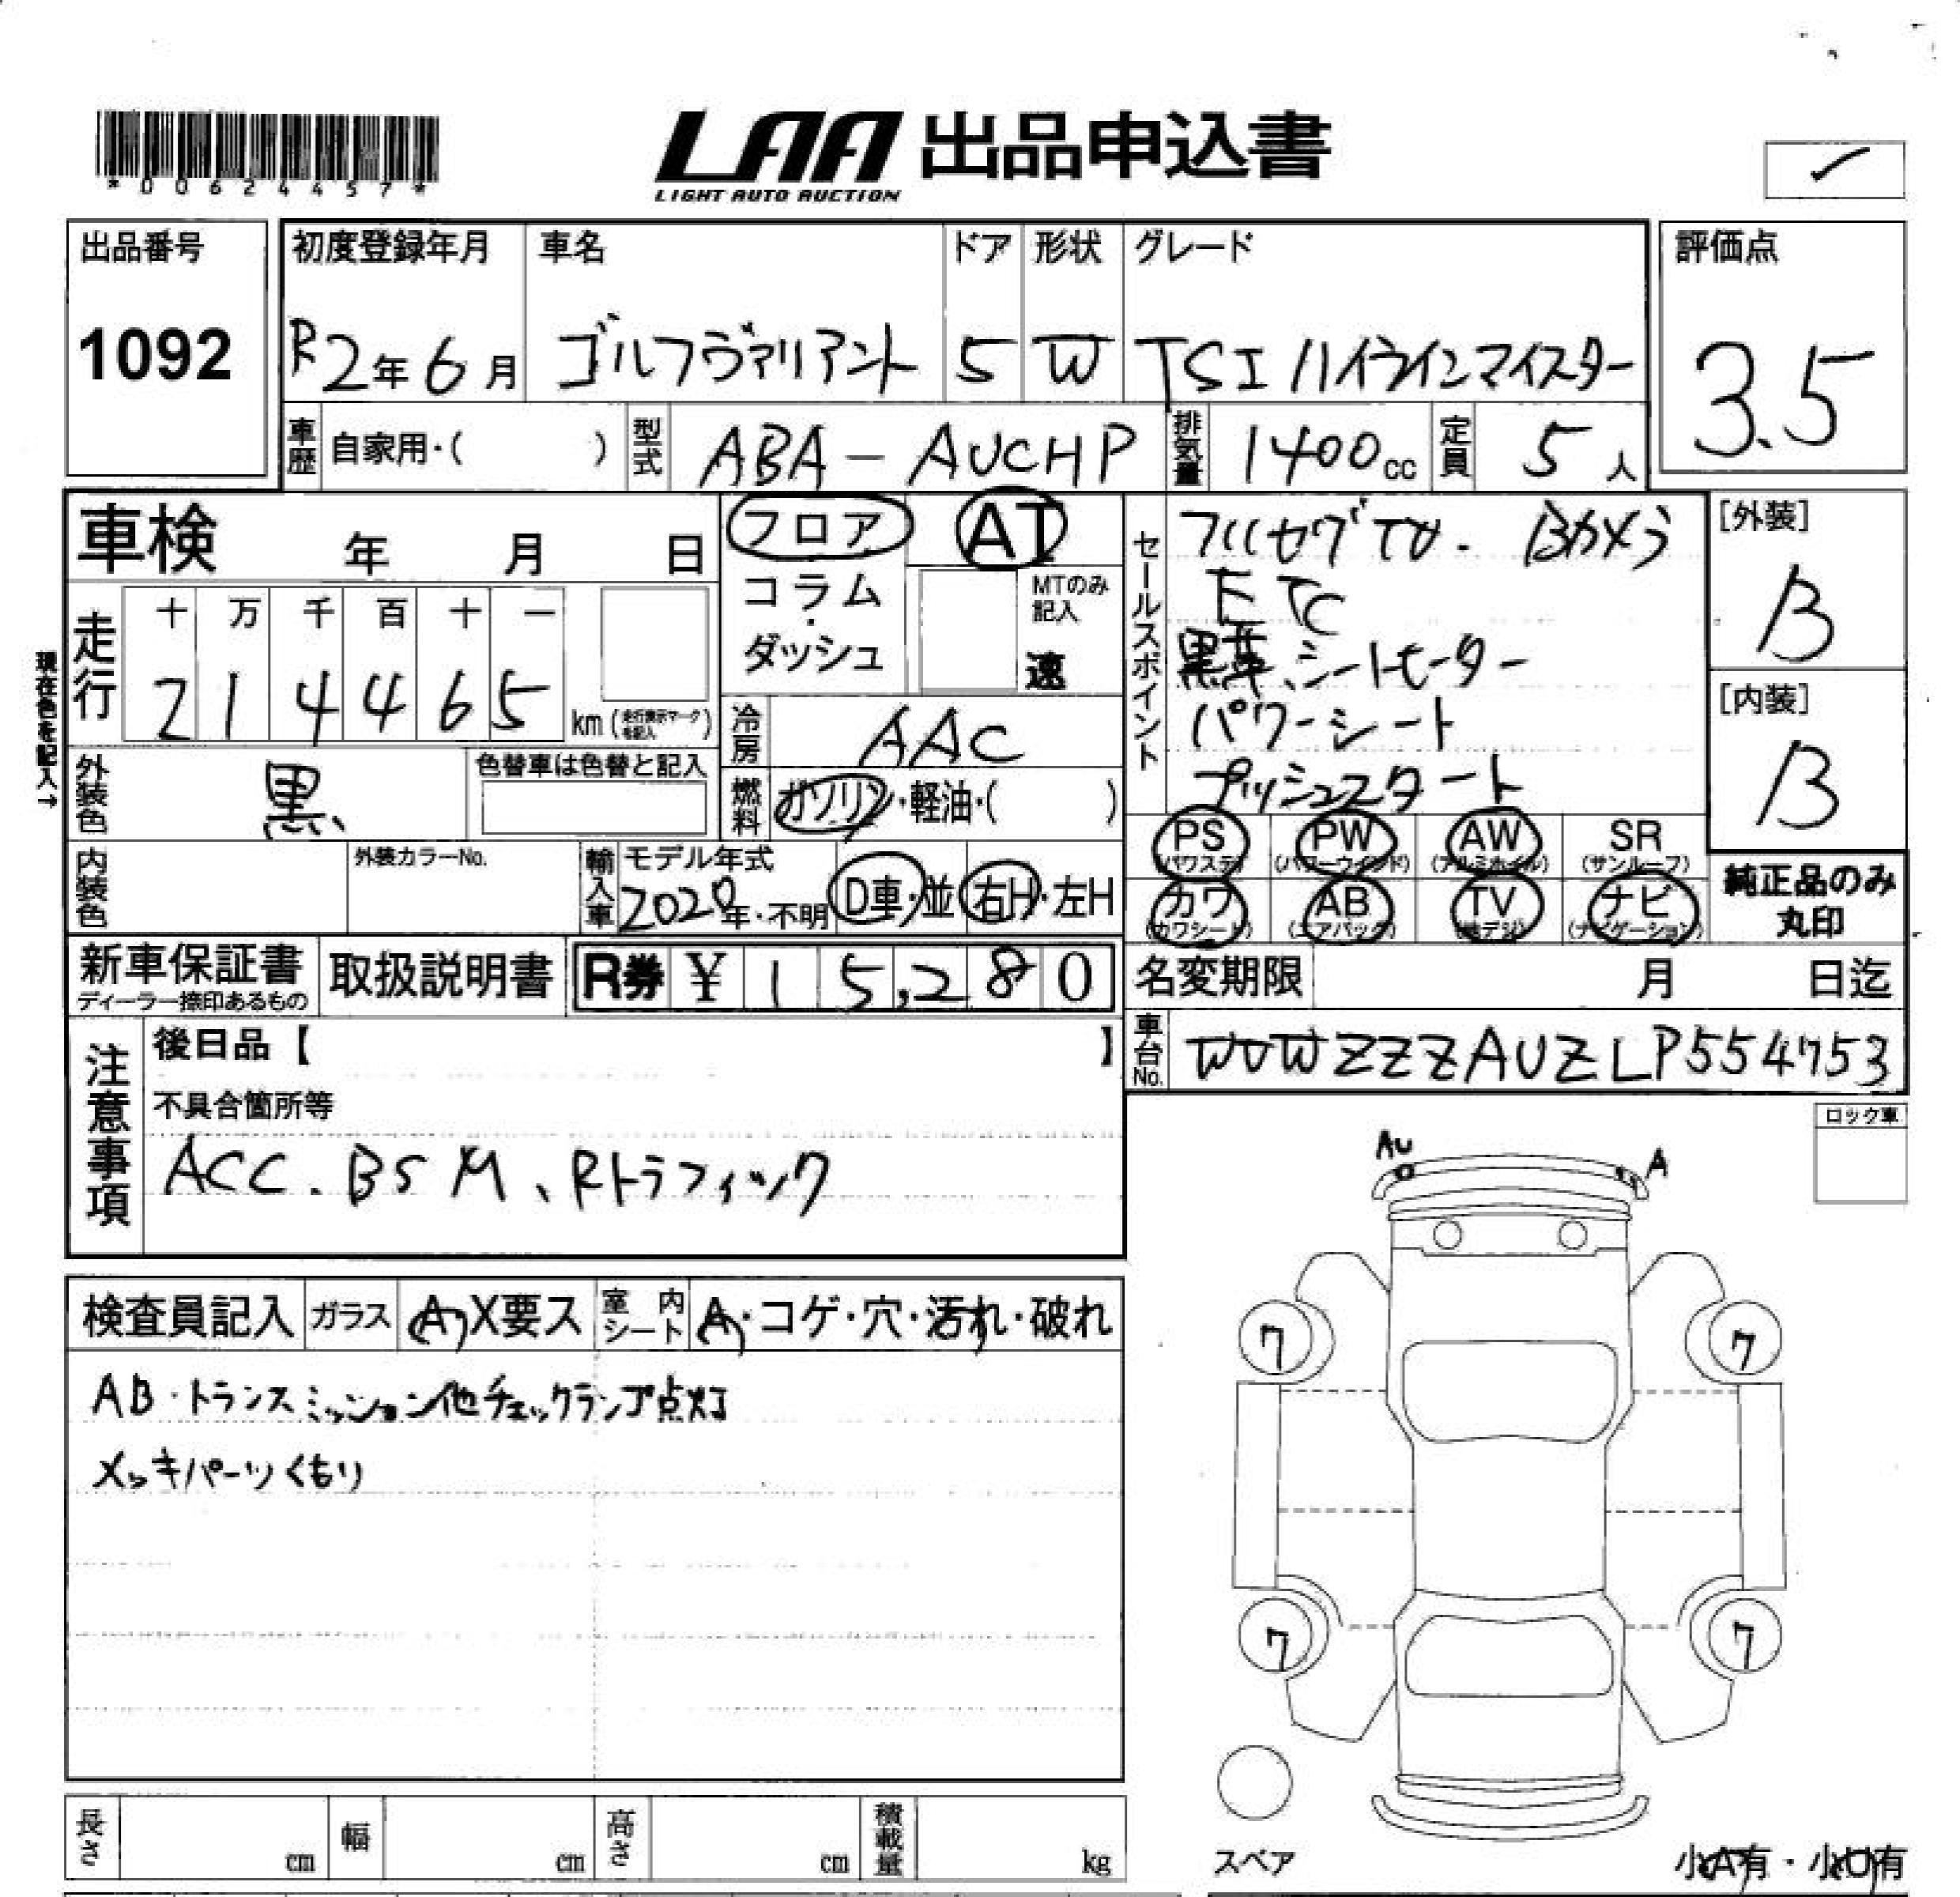 *00624457*
LAA 出品申込書
LIGHT AUTO AUCTION
出品番号 初度登録年月 車名 ドア 形状 グレード 評価点
1092 R2年6月 ゴルフヴァリアント 5 W TSI ハイラインマイスター 3.5
車歴 自家用・( ) 型式 ABA-AUCHP 排気量 1400cc 定員 5人
車検 年 月 日
フロア AT
コラム・ダッシュ
MTのみ記入 速
現在色を記入→
走行 十 万 千 百 十 一
2 1 4 4 6 5 km (走行表示マークを記入)
冷房 AAC
外装色 黒 色替車は色替と記入
燃料 ガソリン・軽油・( )
内装色 外装カラーNo. 輸入車 モデル年式 2020年・不明 D車・並 右H・左H
セールスポイント
フルセグTV. Bカメラ
ETC
黒革、シートヒーター
パワーシート
プッシュスタート
[外装]
B
[内装]
B
PS (パワステ) PW (パワーウインド) AW (アルミホイル) SR (サンルーフ)
カワ (カワシート) AB (エアバック) TV (地デジ) ナビ (ナビゲーション)
純正品のみ
丸印
新車保証書 ディーラー捺印あるもの 取扱説明書 R券 ¥ 15,280
名変期限 月 日迄
車台No. WVWZZZAUZLP554753
注意事項
後日品【 】
不具合箇所等
ACC. BSM、Rトラフィック
ロック車
検査員記入 ガラス A・X要ス 室内シート A・コゲ・穴・汚れ・破れ
AB・トランスミッション他チェックランプ点灯
メッキパーツくもり
AU A
7 7
7 7
スペア
小A有・小U有
長さ cm 幅 cm 高さ cm 積載量 kg